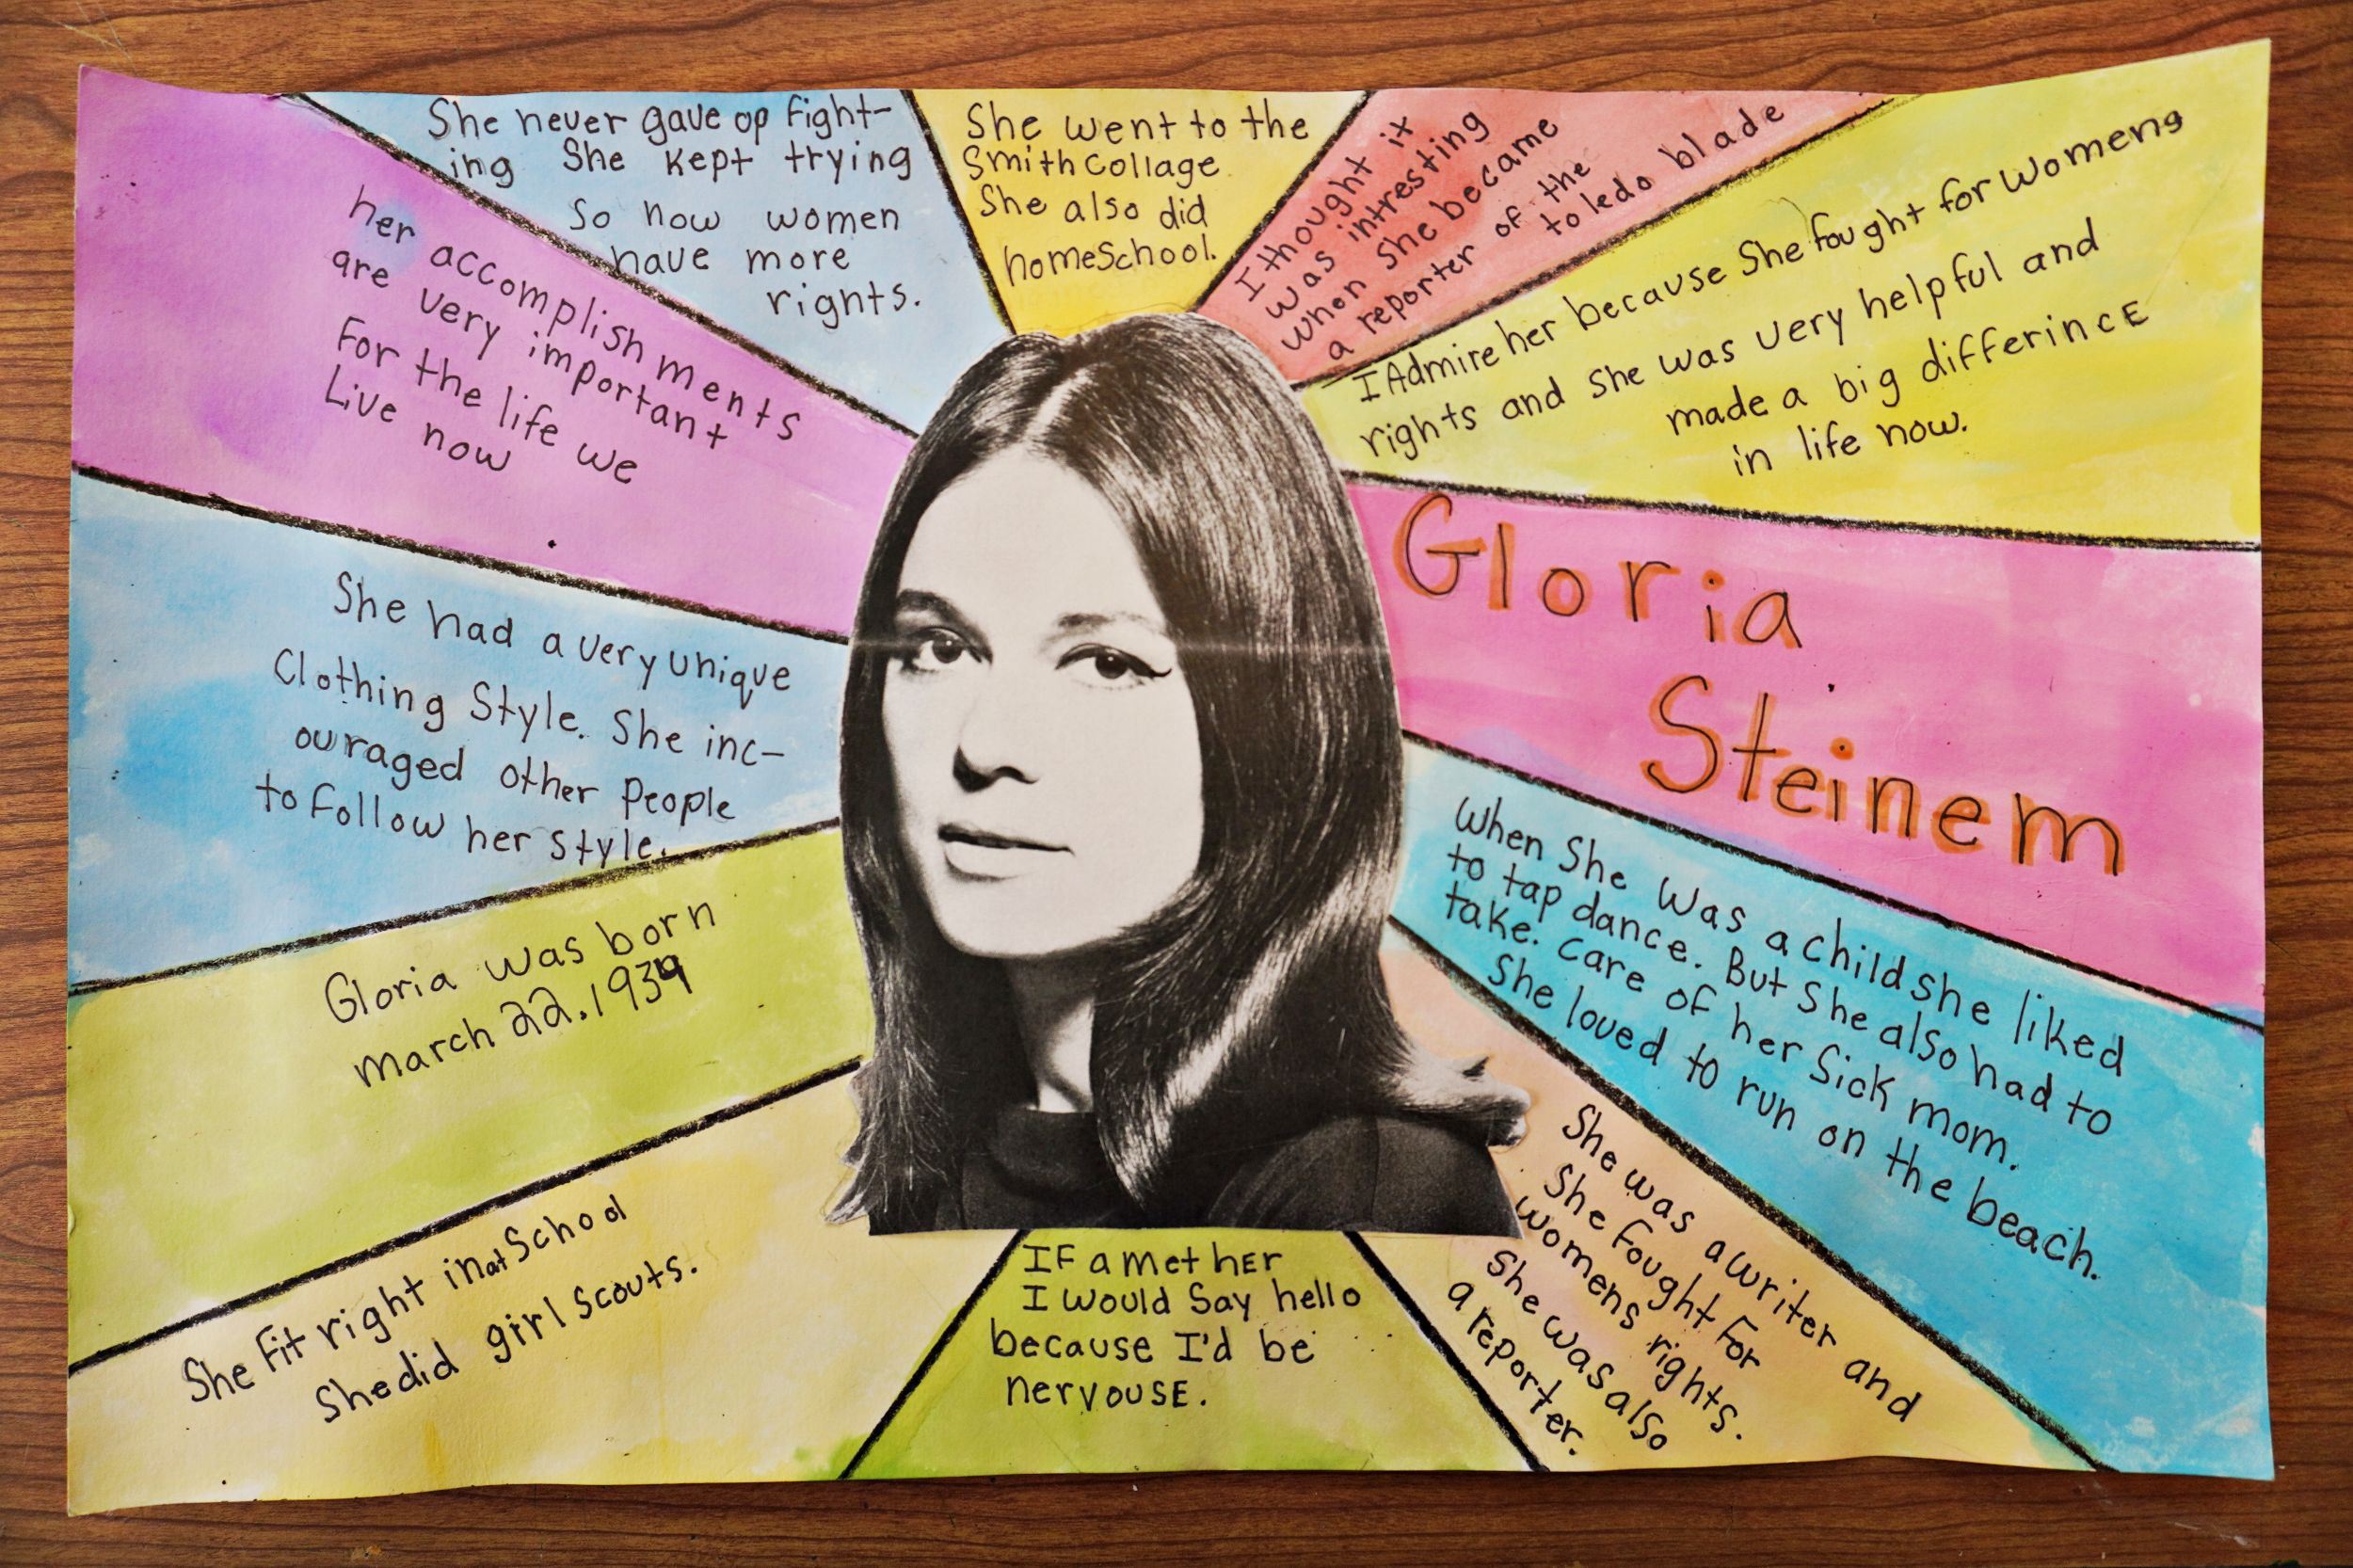 She never gave op fight-
ing She kept trying
So now women
have more
rights.
She went to the
Smith Collage
She also did
homeSchool.
I thought it
was intresting
when she became
a reporter of the
to ledo blade
I Admire her because She fought for womens
rights and she was very helpful and
made a big differincE
in life now.
Gloria
Steinem
When She Was a child she liked
to tap dance. But She also had to
take. care of her Sick mom.
She loved to run on the beach.
She was a writer and
She fought For
womens rights.
She was also
a reporter.
IF a met hEr
I would Say hello
because I'd be
nervousE.
She Fit right in at School
She did girl scouts.
Gloria was born
march 22.1934
She had a very unique
Clothing Style. She inc-
ouraged other People
to follow her style.
her accomplishments
are very important
For the life we
Live now